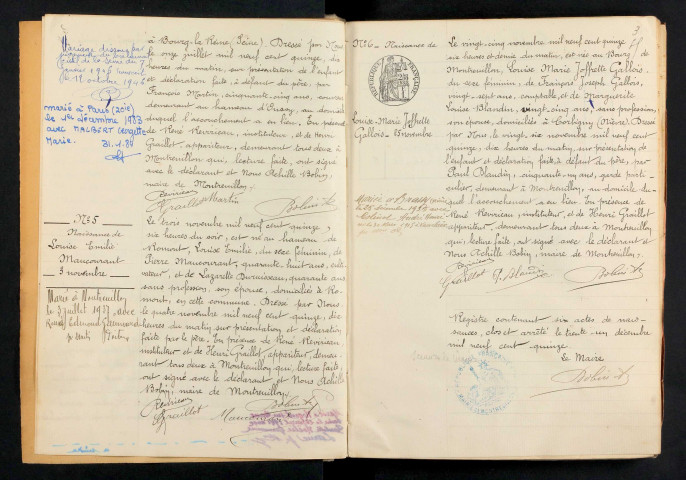 à Bourg-la-Reine (Seine) Dressé par Nous
le onze juillet mil neuf cent quinze, dix
heures du matin, sur présentation de l'enfant
et déclaration faite, à défaut du père, par
François Martin, cinquante-cinq ans,
demeurant au hameau d', au domicile
duquel l'accouchement a eu lieu. En présence
de René Revirieau, instituteur, et de Henri
Graillot appariteur, demeurant tous deux à
Montreuillon qui, lecture faite, ont signé
avec le déclarant et Nous Achille Bobin,
maire de Montreuillon.
Graillot Martin Bobin A
marié à Paris (20e)
le 1er décembre 1983
avec MALBERT
Marie.
31.1.84
N° 5
Naissance de
Louise Emilie
Maucourant
3 novembre
Mariée à Montreuillon
le 3 juillet 1937, avec
Edmond
Le trois novembre mil neuf cent quinze,
six heures du soir, est née au hameau de
Romont, Louise Emilie, du sexe féminin, de
Pierre Maucourant, quarante huit ans, culti-
vateur, et de Lazarette, quarante ans
sans profession, son épouse, domiciliés à Ro-
mont, en cette commune. Dressé par Nous
le quatre novembre mil neuf cent quinze, dix
heures du matin, sur présentation et déclaration
faite par le père. En présence de René Revirieau
instituteur et de Henri Graillot, appariteur, demeu-
rant tous deux à Montreuillon qui, lecture faite,
ont signé avec le déclarant et Nous Achille
Bobin, maire de Montreuillon.
Graillot Bobin A
N° 6 - Naissance de
RÉPUBLIQUE FRANÇAISE
Louise-Marie Joffrette
Gallois - 25 novembre
Le vingt-cinq novembre mil neuf cent quinze
six heures et demie du matin, est née au Bourg
de Montreuillon, Louise Marie Joffrette Gallois,
du sexe féminin, de François Joseph Gallois,
vingt-sept ans, comptable, et de Marguerite
Louise Blandin, vingt-cinq ans, sans profession,
son épouse, domiciliés à Corbigny (Nièvre) Dressé
par Nous le vingt-six novembre mil neuf cent
quinze, dix heures du matin, sur présentation de
l'enfant et déclaration faite, à défaut du père, par
Paul Blandin, cinquante-ans, garde parti-
culier, demeurant à Montreuillon, au domicile du-
quel l'accouchement a eu lieu. En présence de
René Revirieau, instituteur, et de Henri Graillot
appariteur, demeurant tous deux à Montreuillon
qui, lecture faite, ont signé avec le déclarant et
Nous Achille Bobin, maire de Montreuillon.
Graillot P. Blandin Bobin A
Registre contenant six actes de nais-
sances, clos et arrêté le trente-un décembre
mil neuf cent quinze.
Le Maire
Bobin A